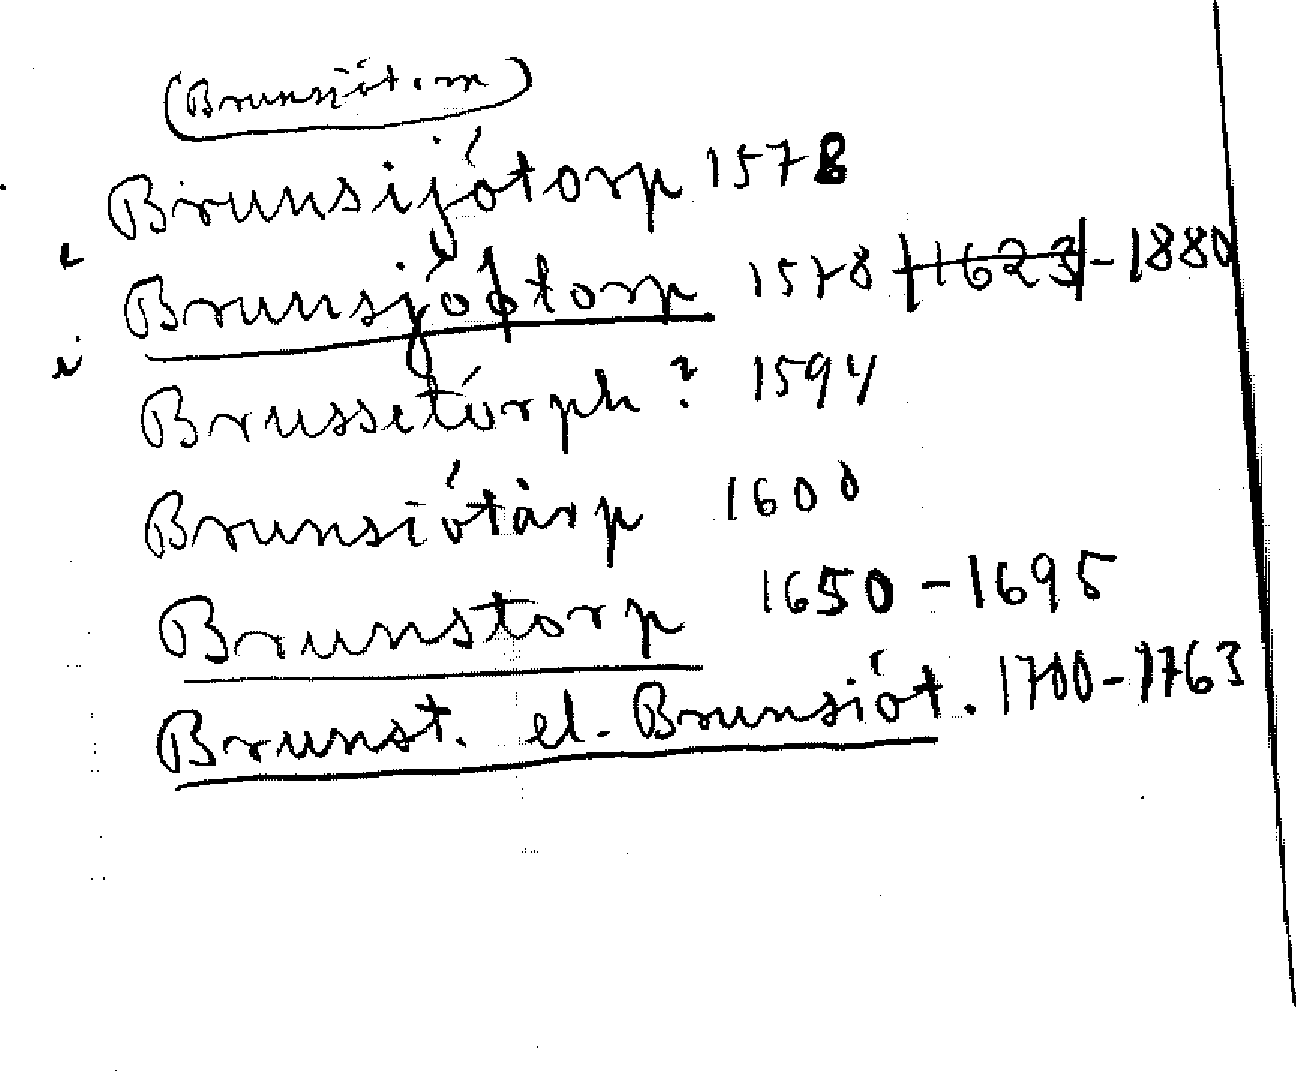 (Brunsiöt. m)
Brunsijótorp 1578
Brunsjötorp 1578 1623 - 1880
Brussetórph? 1594
Brunsiótàrp 1600
Brunstorp 1650 - 1695
Brunst. el. Brunsiót. 1700 - 1763